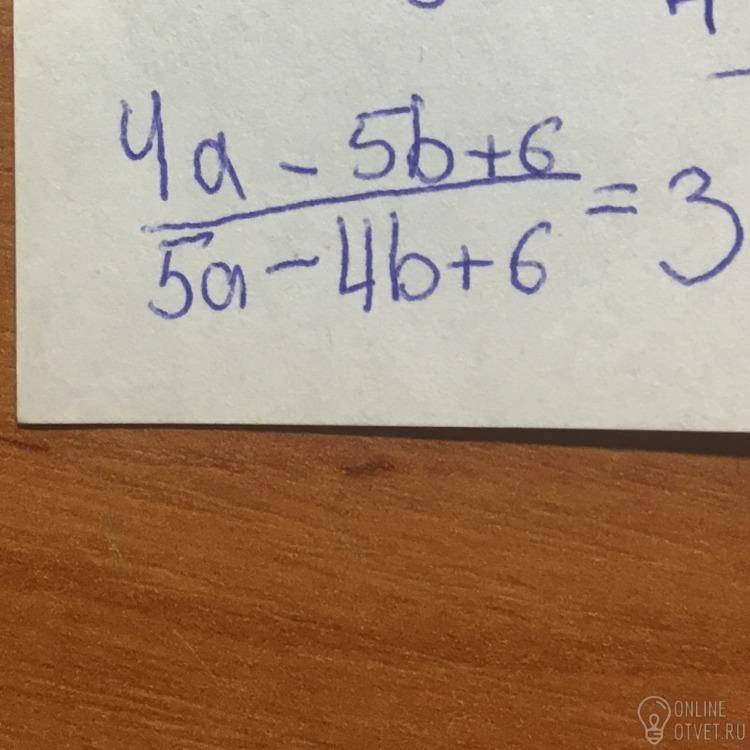 4a - 5b + 6
5a - 4b + 6 = 3
ONLINE
OTVET.RU